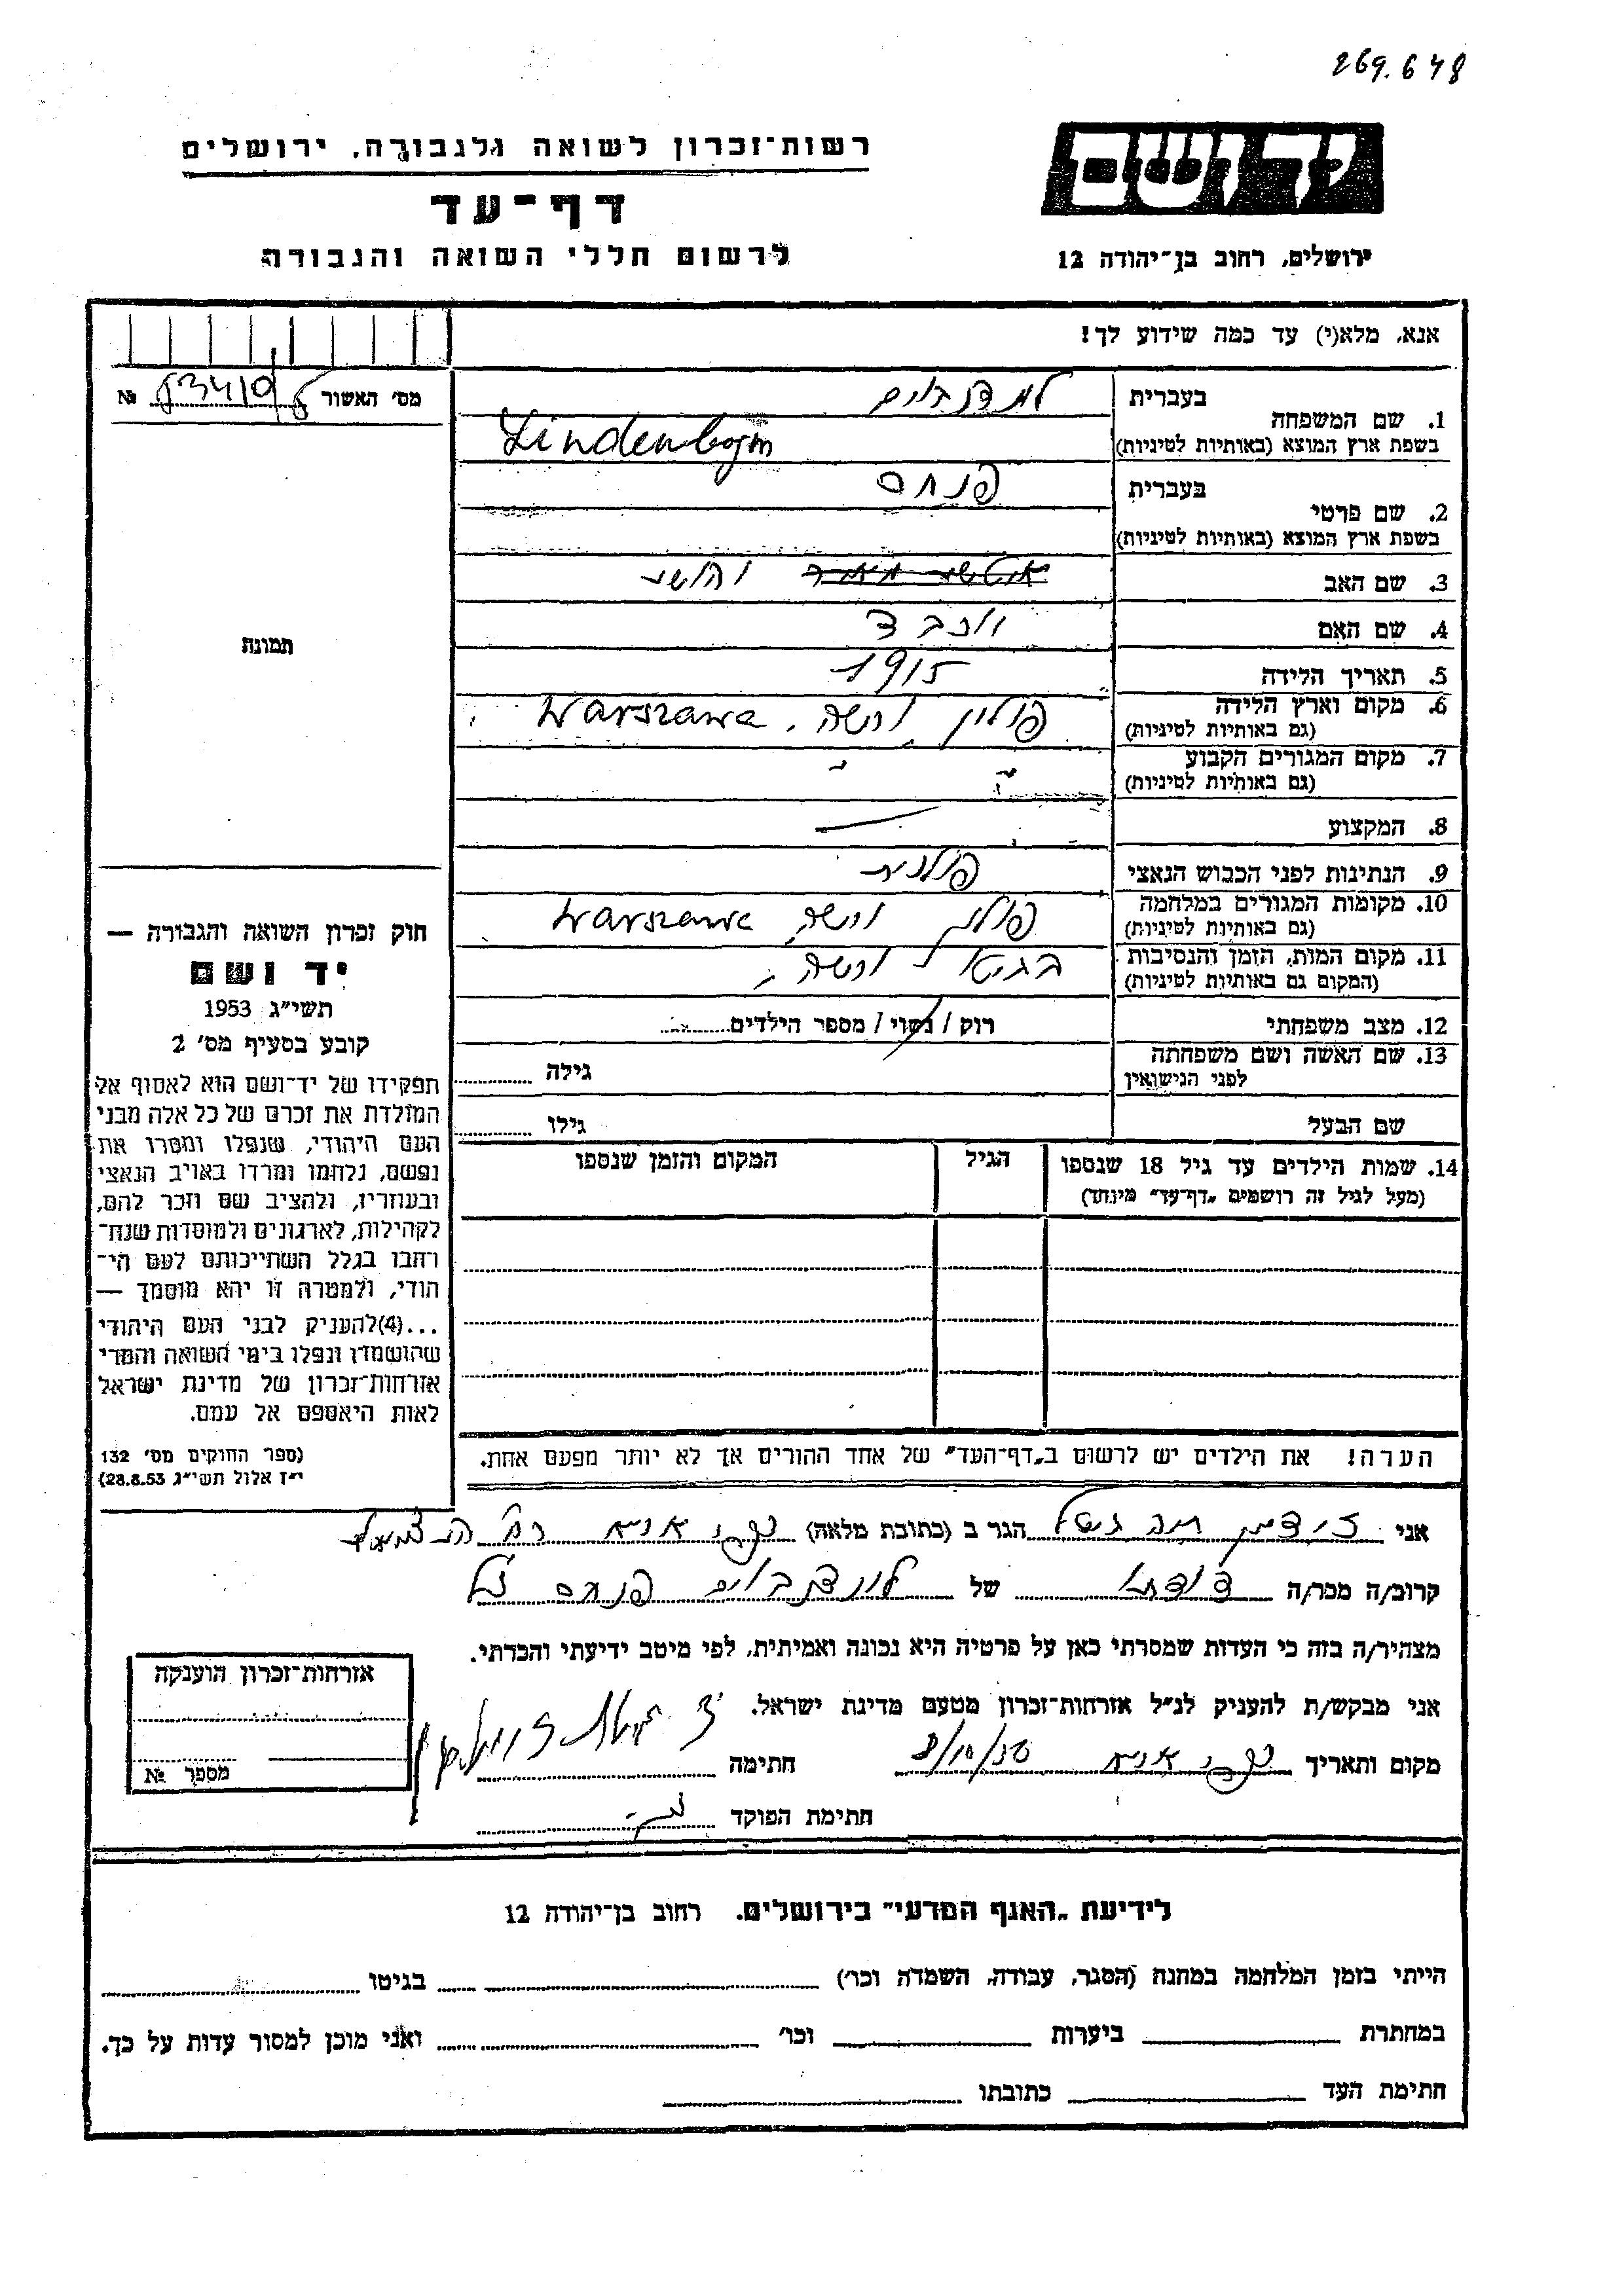 269.648
רשות־זכרון לשואה ולגבורה, ירושלים
יד ושם
דף־עד
לרשום חללי השואה והגבורה
ירושלים, רחוב בן־יהודה 12
אנא, מלא(י) עד כמה שידוע לך!
מס׳ האשור № 83410/
1. שם המשפחה
בעברית
בשפת ארץ המוצא (באותיות לטיניות) Lindenbojm
2. שם פרטי
בעברית פנחס
בשפת ארץ המוצא (באותיות לטיניות)
3. שם האב יהושע
4. שם האם יוכבד
5. תאריך הלידה 1915
6. מקום וארץ הלידה
(גם באותיות לטיניות) פולין ורשה, Warszawa
7. מקום המגורים הקבוע
(גם באותיות לטיניות) ״ ״
8. המקצוע —
9. הנתינות לפני הכבוש הנאצי פולנית
10. מקומות המגורים במלחמה
(גם באותיות לטיניות) פולין ורשה, Warszawa
11. מקום המות, הזמן והנסיבות
(המקום גם באותיות לטיניות) בגיטו ורשה
12. מצב משפחתי רוק / נשוי / מספר הילדים
13. שם האשה ושם משפחתה
לפני הנישואין גילה
שם הבעל גילו
14. שמות הילדים עד גיל 18 שנספו
(מעל לגיל זה רושמים „דף־עד״ מיוחד)
הגיל
המקום והזמן שנספו
הערה! את הילדים יש לרשום ב„דף־העד״ של אחד ההורים אך לא יותר מפעם אחת.
תמונה
חוק זכרון השואה והגבורה —
יד ושם
תשי״ג 1953
קובע בסעיף מס׳ 2
תפקידו של יד־ושם הוא לאסוף אל
המולדת את זכרם של כל אלה מבני
העם היהודי, שנפלו ומסרו את
נפשם, נלחמו ומרדו באויב הנאצי
ובעוזריו, ולהציב שם וזכר להם,
לקהילות, לארגונים ולמוסדות שנח־
רחבו בגלל השתייכותם לעם הי־
הודי, ולמטרה זו יהא מוסמך —
...(4)להעניק לבני העם היהודי
שהושמדו ונפלו בימי השואה והמרי
אזרחות־זכרון של מדינת ישראל
לאות היאספם אל עמם.
(ספר החוקים מס׳ 132
י״ז אלול תשי״ג 28.8.53)
אני הגר ב (כתובת מלאה)
קרוב/ה מכר/ה של לינדנבוים פנחס ז״ל
מצהיר/ה בזה כי העדות שמסרתי כאן על פרטיה היא נכונה ואמיתית, לפי מיטב ידיעתי והכרתי.
אני מבקש/ת להעניק לנ״ל אזרחות־זכרון מטעם מדינת ישראל.
מקום ותאריך 8/10/56 חתימה
חתימת הפוקד
אזרחות־זכרון הוענקה
מספר №
לידיעת „האגף המדעי״ בירושלים. רחוב בן־יהודה 12
הייתי בזמן המלחמה במחנה (הסגר, עבודה, השמדה וכר׳) בגיטו
במחתרת ביערות וכר׳ ואני מוכן למסור עדות על כך.
חתימת העד כתובתו